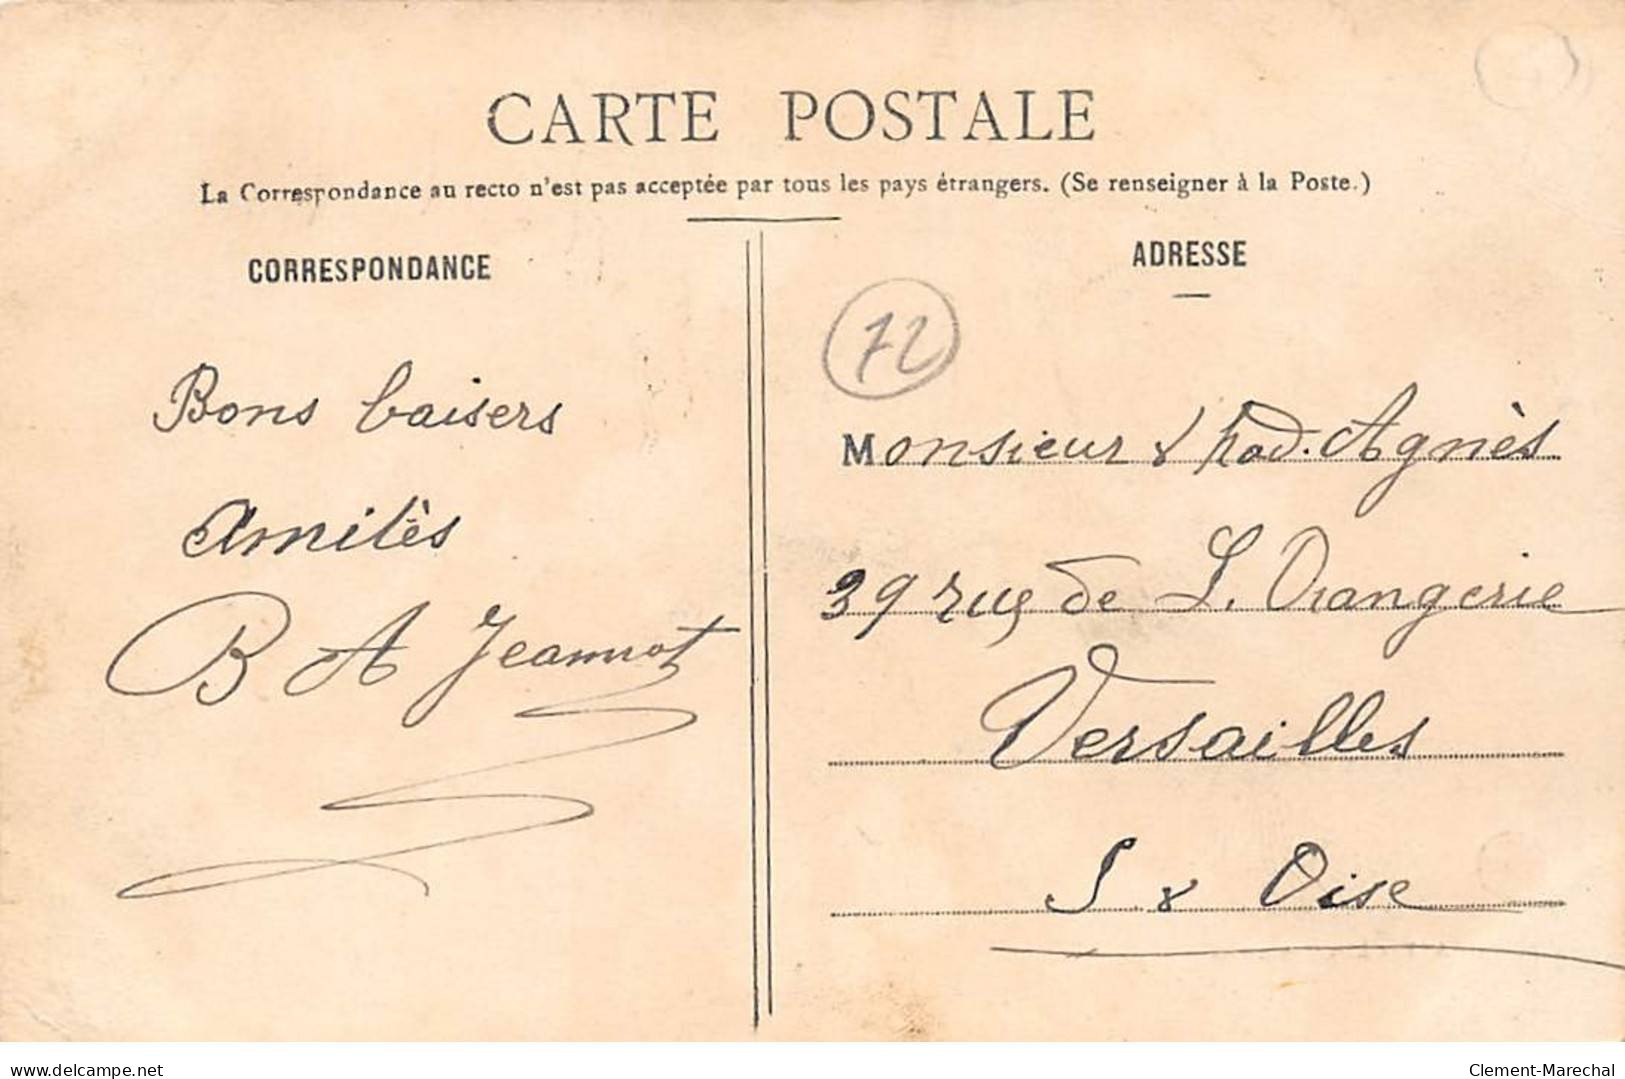 CARTE POSTALE
La Correspondance au recto n'est pas acceptée par tous les pays étrangers. (Se renseigner à la Poste.)
CORRESPONDANCE
Bons baisers
Amitiès
B A Jeannot
ADRESSE
72
Monsieur & Mad. Agnès
39 rue de L. Orangerie
Versailles
S & Oise
delcampe.net
Clement-Marechal